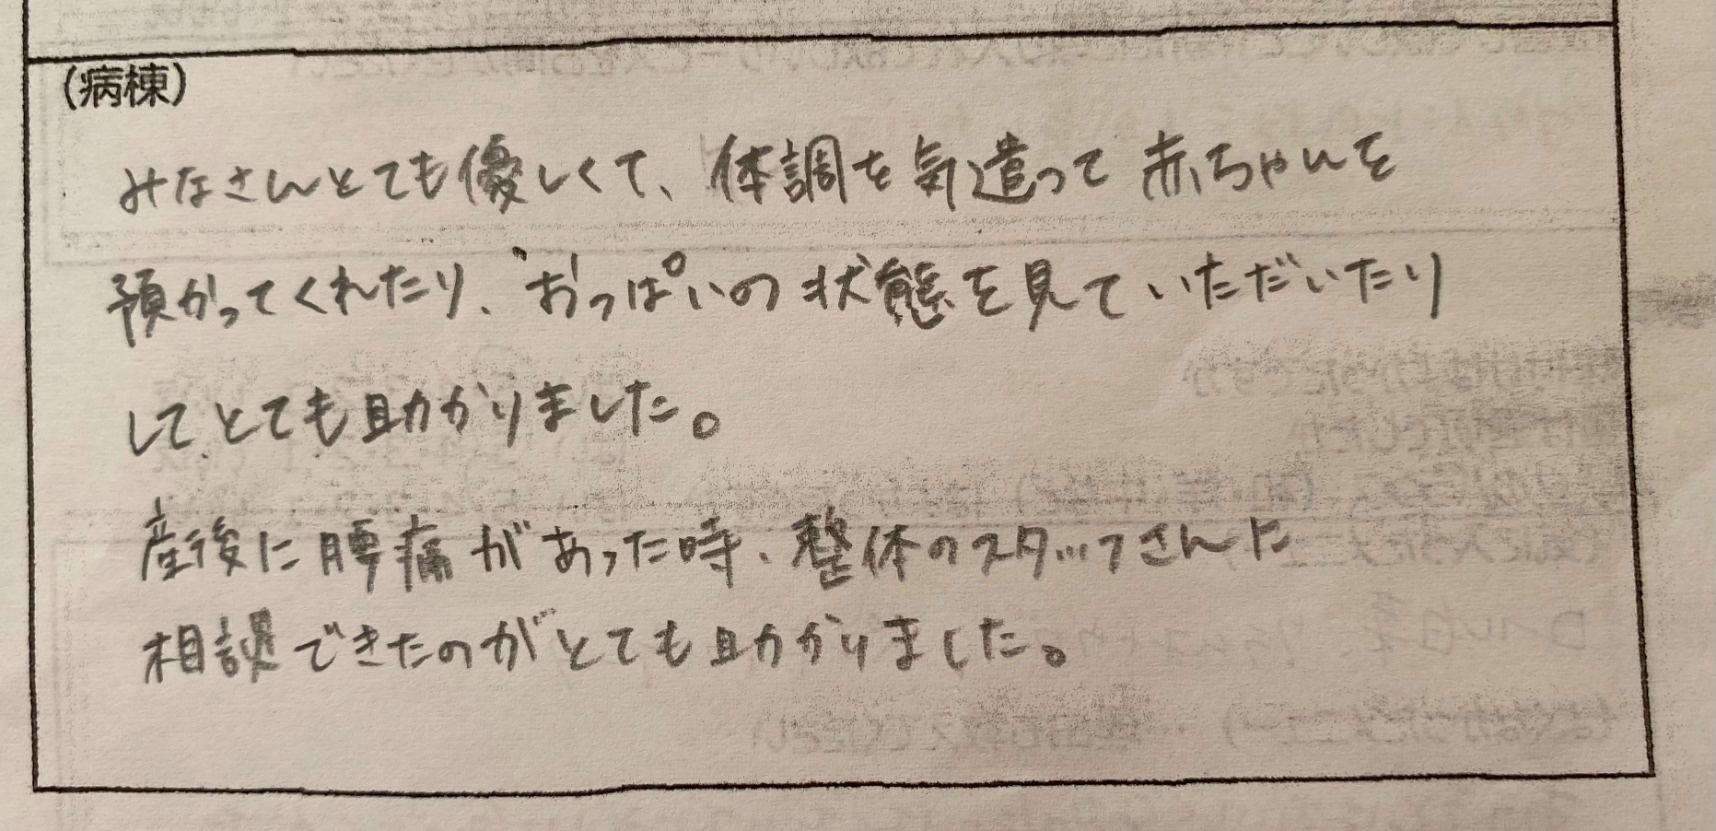 (病棟)
みなさんとても優しくて、体調を気遣って赤ちゃんを
預かってくれたり、おっぱいの状態を見ていただいたり
してとても助かりました。
産後に腰痛があった時、整体のスタッフさんに
相談できたのがとても助かりました。